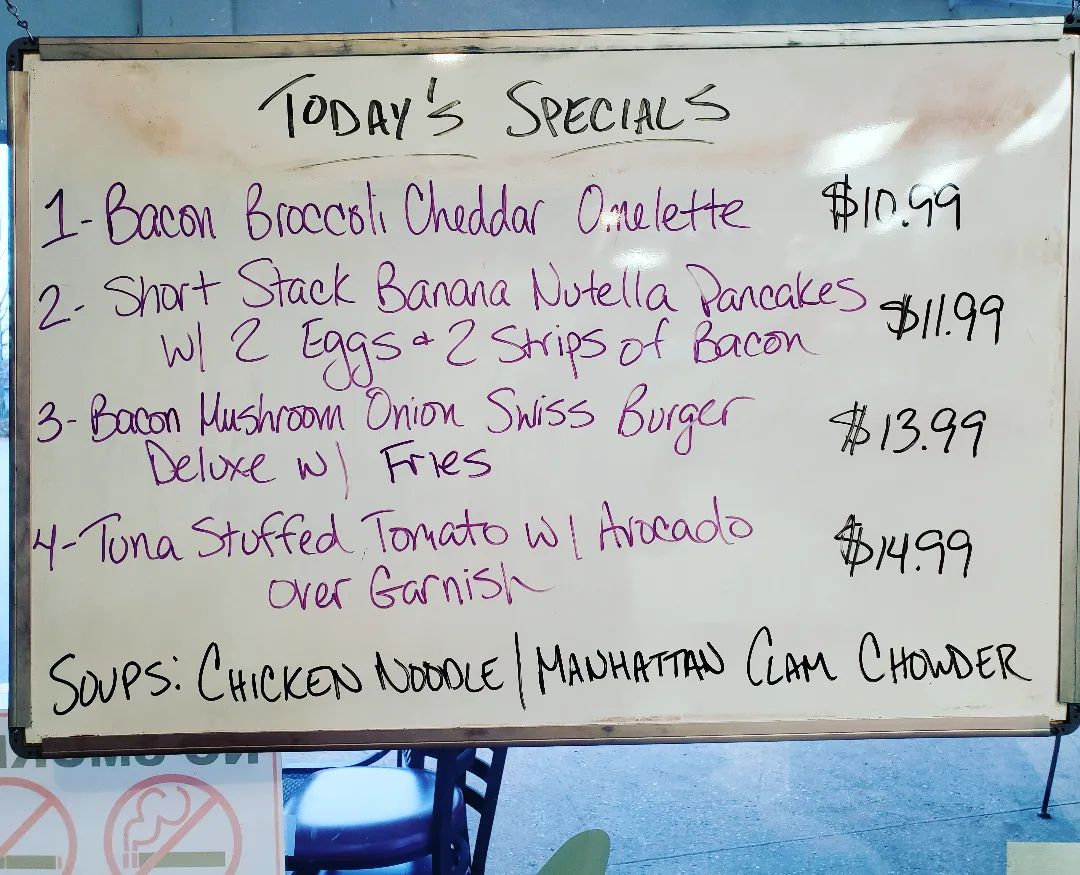 Today's Specials
1- Bacon Broccoli Cheddar Omelette $10.99
2- Short Stack Banana Nutella Pancakes
w/ 2 Eggs & 2 Strips of Bacon $11.99
3- Bacon Mushroom Onion Swiss Burger
Deluxe w/ Fries $13.99
4- Tuna Stuffed Tomato w/ Avocado
over Garnish $14.99
Soups: Chicken Noodle / Manhattan Clam Chowder
NO SMOKI